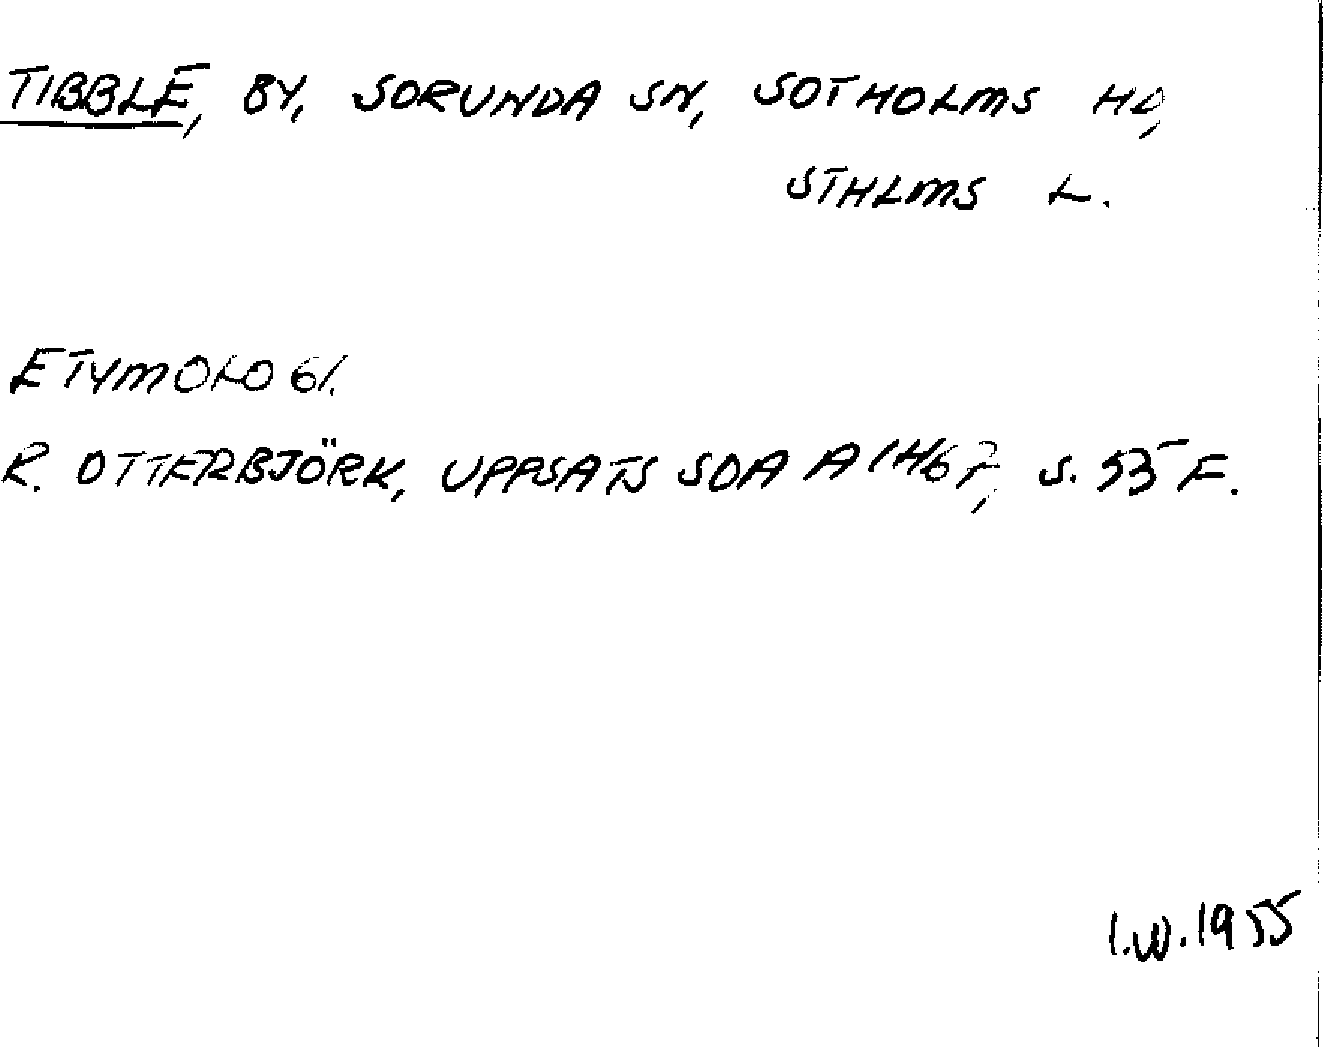 TIBBLE, BY, SORUNDA SN, SOTHOLMS HD,
STHLMS L.
ETYMOLOGI.
R. OTTERBJÖRK, UPPSATS SOA A s. 53 F.
I.W. 1955